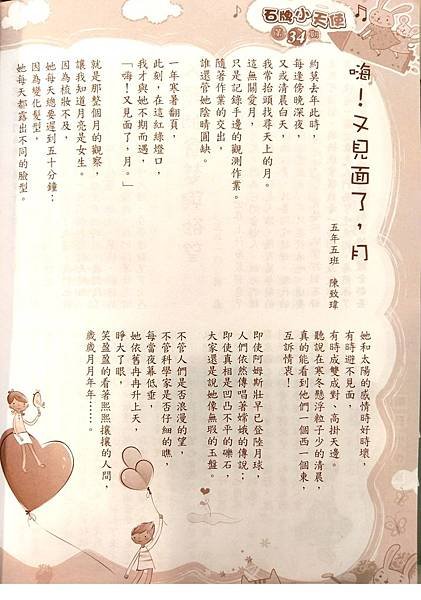 石牌小天使
第34期
嗨！又見面了，月
五年五班　陳致瑋
約莫去年此時，
每逢傍晚深夜，
又或清晨白天，
我常抬頭找尋天上的月。
這無關愛月，
只是記錄手邊的觀測作業。
隨著作業的交出，
誰還管她陰晴圓缺。
一年寒暑翻頁，
此刻，在這紅綠燈口，
我才與她不期而遇，
「嗨！又見面了，月。」
就是那整個月的觀察，
讓我知道月亮是女生。
因為梳妝不及，
她每天總要遲到五十分鐘；
因為變化髮型，
她每天都露出不同的臉型。
她和太陽的感情時好時壞，
有時避不見面，
有時成雙成對、高掛天邊。
聽說在寒冬懸浮粒子少的清晨，
真的能看到他們一個西一個東，
互訴情衷！
即使阿姆斯壯早已登陸月球，
人們依然傳唱著嫦娥的傳說；
即使真相是凹凸不平的礫石，
大家還是說她像無瑕的玉盤。
不管人們是否浪漫的望，
不管科學家是否仔細的瞧，
每當夜幕低垂，
她依舊冉冉升上天，
睜大了眼，
笑盈盈的看著熙熙攘攘的人間，
歲歲月月年年……。